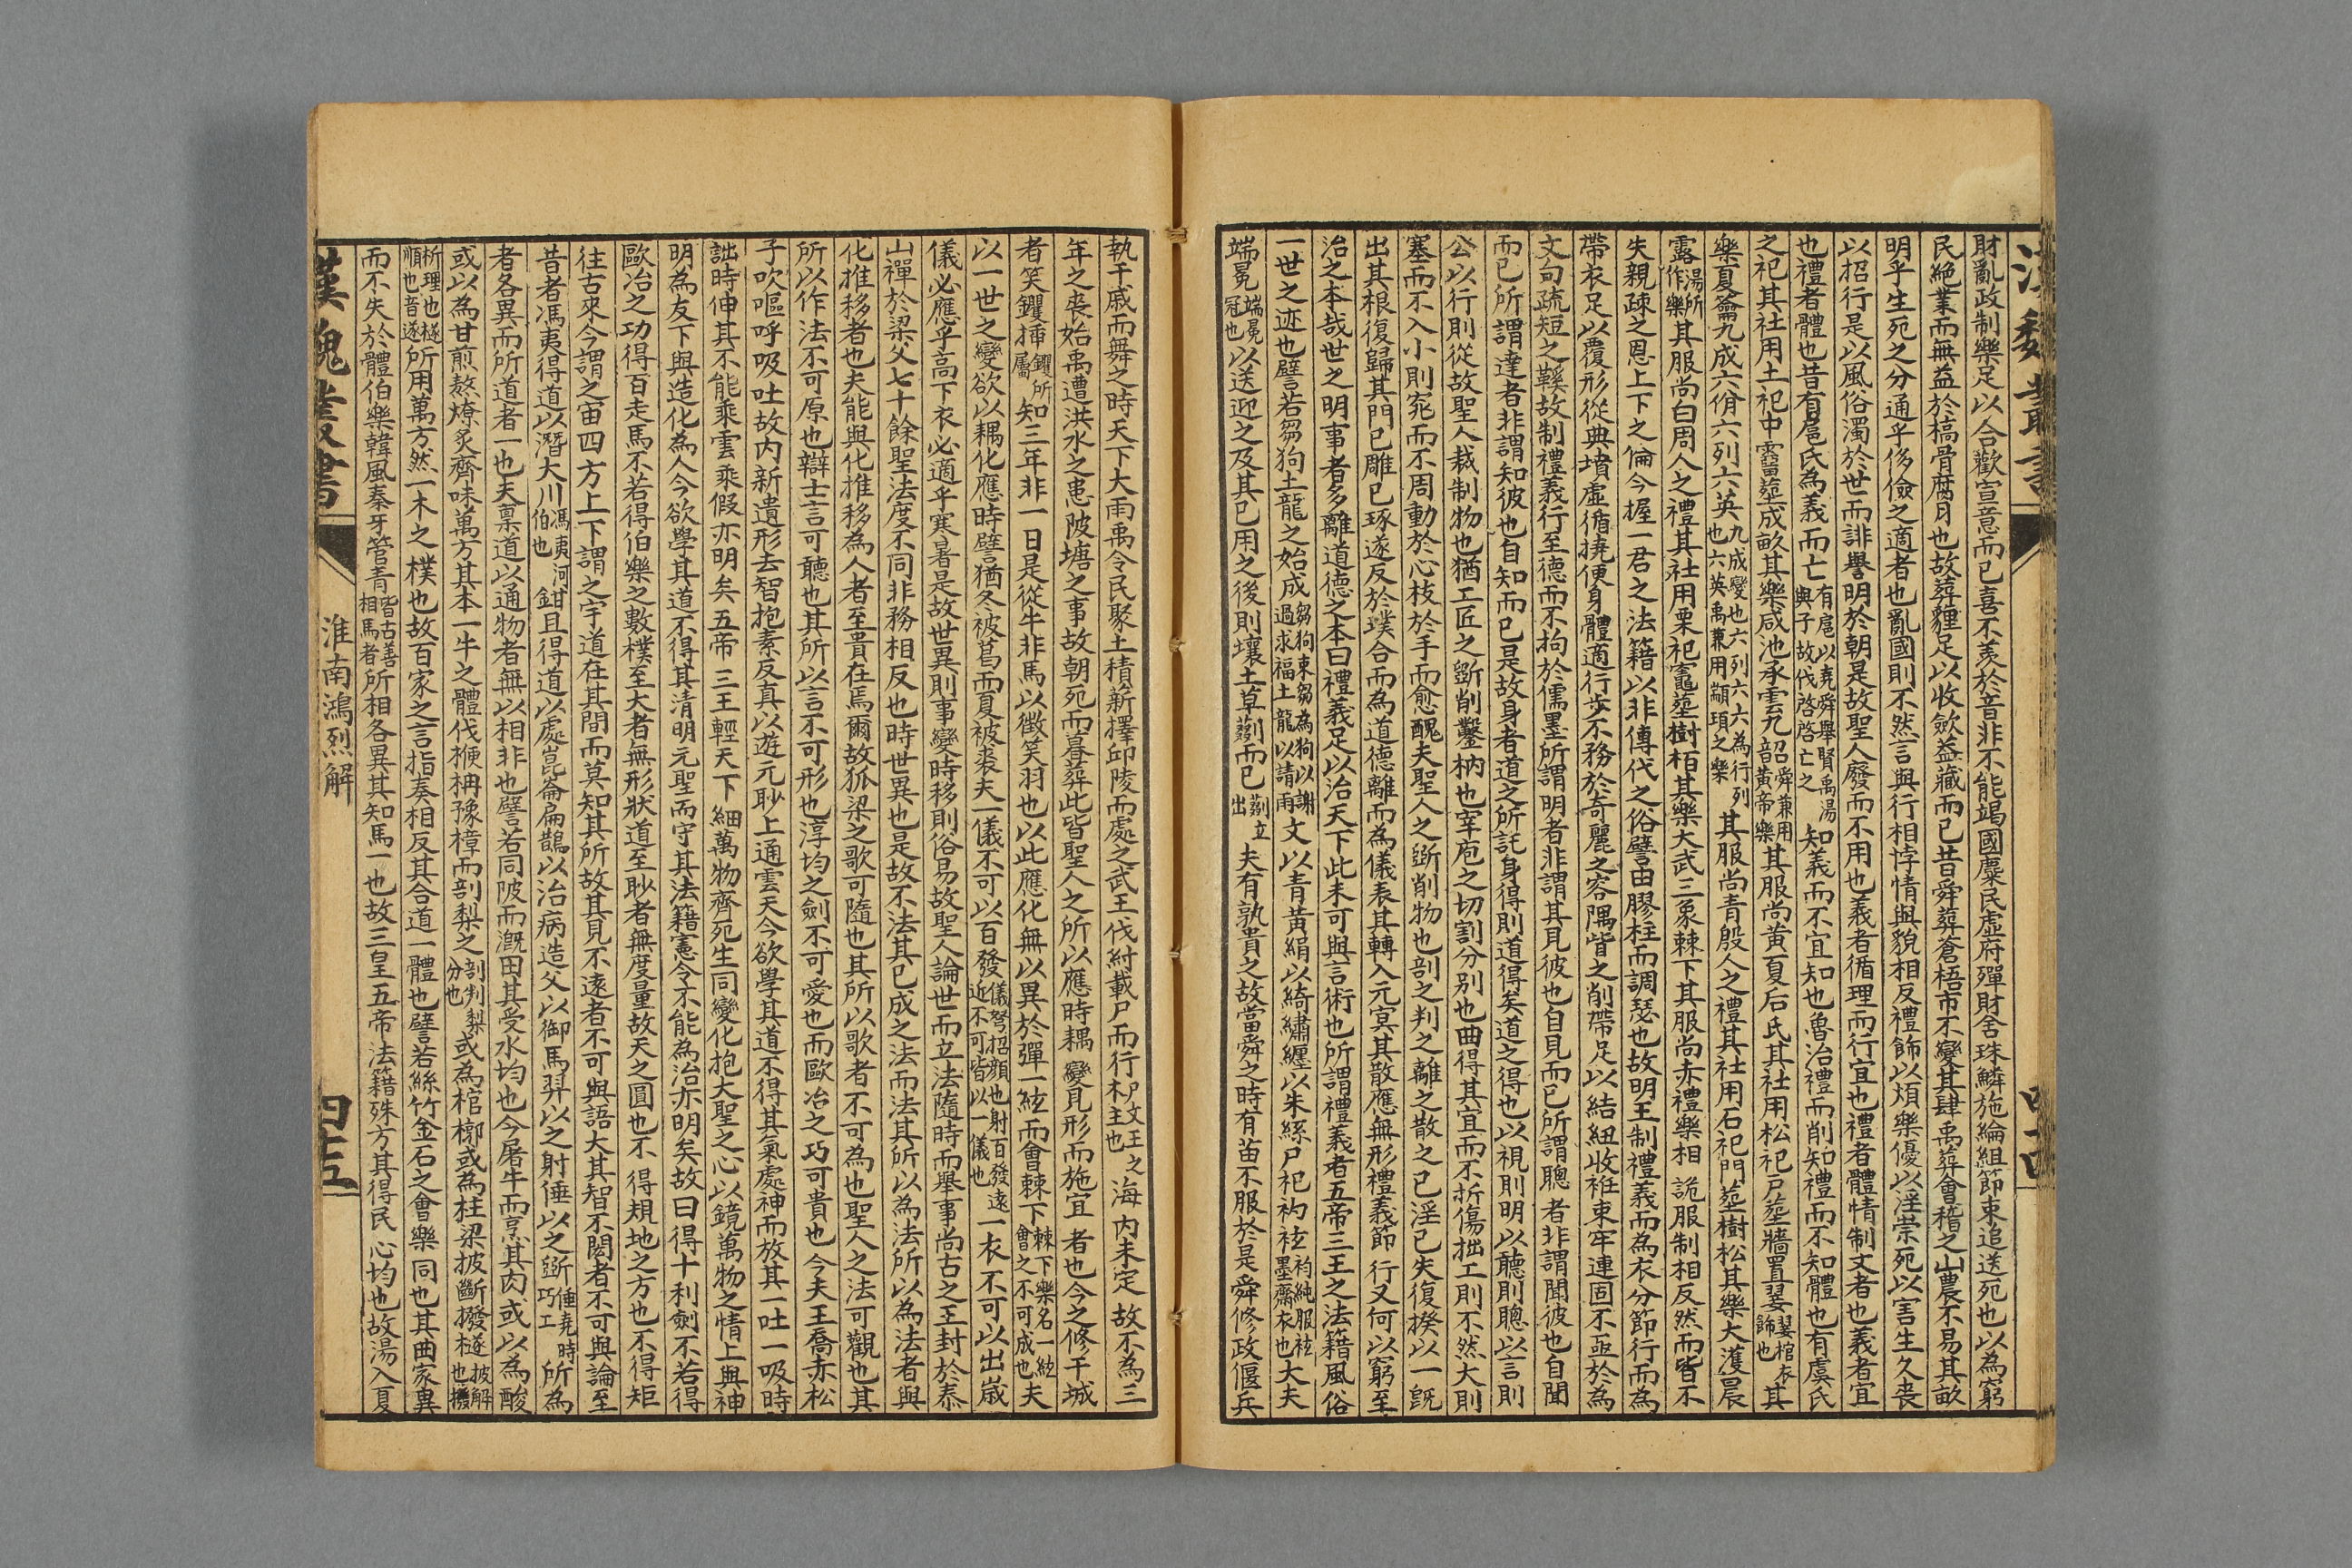 財亂政制樂足以合歡宣意而已喜不羨於音非不能竭國麋民虛府殫財含珠鱗施綸組節束追送死也以為窮
民絶業而無益於槁骨腐肉也故葬薶足以收歛益藏而已昔舜葬蒼梧市不變其肆禹葬會稽之山農不易其畝
明乎生死之分通乎侈儉之適者也亂國則不然言與行相悖情與貌相反禮飾以煩樂優以淫崇死以害生久喪
以招行是以風俗濁於世而誹譽明於朝是故聖人廢而不用也義者循理而行宜也禮者體情制文者也義者宜
也禮者體也昔有扈氏為義而亡有扈以堯舜舉賢禹湯與子故伐啓啓亡之知義而不宜知也魯治禮而削知禮而不知體也有虞氏
之祀其社用土祀中霤葬成畝其樂咸池承雲九韶舜兼用黃帝樂其服尚黃夏后氏其社用松祀戶葬牆置翣翣棺衣飾也其
樂夏籥九成六佾六列六英九成變也六列六六為行列也六英禹兼用顓頊之樂其服尚青殷人之禮其社用石祀門葬樹松其樂大濩晨
露湯所作樂其服尚白周人之禮其社用栗祀竈葬樹栢其樂大武三象棘下其服尚赤禮樂相詭服制相反然而皆不
失親疎之恩上下之倫今握一君之法籍以非傳代之俗譬由膠柱而調瑟也故明王制禮義而為衣分節行而為
帶衣足以覆形從典墳虛循撓便身體適行步不務於奇麗之容隅眥之削帶足以結紐收衽束牢連固不亟於為
文句疏短之鞵故制禮義行至德而不拘於儒墨所謂明者非謂其見彼也自見而已所謂聰者非謂聞彼也自聞
而已所謂達者非謂知彼也自知而已是故身者道之所託身得則道得矣道之得也以視則明以聽則聰以言則
公以行則從故聖人裁制物也猶工匠之斵削鑿枘也宰庖之切割分别也曲得其宜而不折傷拙工則不然大則
塞而不入小則窕而不周動於心枝於手而愈醜夫聖人之斵削物也剖之判之離之散之已淫已失復揆以一旣
出其根復歸其門已雕已琢遂反於璞合而為道德離而為儀表其轉入元冥其散應無形禮義節行又何以窮至
治之本哉世之明事者多離道德之本曰禮義足以治天下此未可與言術也所謂禮義者五帝三王之法籍風俗
一世之迹也譬若芻狗土龍之始成芻狗束芻為狗以謝過求福土龍以請雨文以青黃絹以綺繡纏以朱絲尸祝袀袨袀純服袨墨齋衣也大夫
端冕端冕冠也以送迎之及其已用之後則壤土草㔉而已㔉立出夫有孰貴之故當舜之時有苗不服於是舜修政偃兵
執干戚而舞之時天下大雨禹令民聚土積薪擇邱陵而處之武王伐紂載尸而行尸文王之木主也海内未定故不為三
年之喪始禹遭洪水之患陂塘之事故朝死而暮葬此皆聖人之所以應時耦變見形而施宜者也今之修干城
者笑钁揷钁所屬知三年非一日是從牛非馬以徵笑羽也以此應化無以異於彈一絃而會棘下棘下樂名一絃會之不可成也夫
以一世之變欲以耦化應時譬猶冬被葛而夏被裘夫一儀不可以百發儀弩招顏也射百發遠近不可皆以一儀也一衣不可以出嵗
儀必應乎高下衣必適乎寒暑是故世異則事變時移則俗易故聖人論世而立法隨時而舉事尚古之王封於泰
山禪於梁父七十餘聖法度不同非務相反也時世異也是故不法其已成之法而法其所以為法所以為法者與
化推移者也夫能與化推移為人者至貴在焉爾故狐梁之歌可隨也其所以歌者不可為也聖人之法可觀也其
所以作法不可原也辯士言可聽也其所以言不可形也淳均之劍不可愛也而歐冶之巧可貴也今夫王喬赤松
子吹嘔呼吸吐故内新遺形去智抱素反真以遊元眇上通雲天今欲學其道不得其氣處神而放其一吐一吸時
詘時伸其不能乘雲乘假亦明矣五帝三王輕天下細萬物齊死生同變化抱大聖之心以鏡萬物之情上與神
明為友下與造化為人今欲學其道不得其清明元聖而守其法籍憲令不能為治亦明矣故曰得十利劍不若得
歐冶之功得百走馬不若得伯樂之數樸至大者無形狀道至眇者無度量故天之圓也不得規地之方也不得矩
往古來今謂之宙四方上下謂之宇道在其間而莫知其所故其見不遠者不可與語大其智不閎者不可與論至
昔者馮夷得道以潛大川馮夷河伯也鉗且得道以處崑崙扁鵲以治病造父以御馬羿以之射倕以之斵倕堯時巧工所為
者各異而所道者一也夫禀道以通物者無以相非也譬若同陂而漑田其受水均也今屠牛而烹其肉或以為酸
或以為甘煎熬燎炙齊味萬方其本一牛之體伐楩柟豫樟而剖梨之剖判梨分也或為棺槨或為柱梁披斷撥檖披解也撥
析理也檖順也音遂所用萬方然一木之樸也故百家之言指奏相反其合道一體也譬若絲竹金石之會樂同也其曲家異
而不失於體伯樂韓風秦牙管青皆古善相馬者所相各異其知馬一也故三皇五帝法籍殊方其得民心均也故湯入夏
漢魏叢書
淮南鴻烈解
四十五